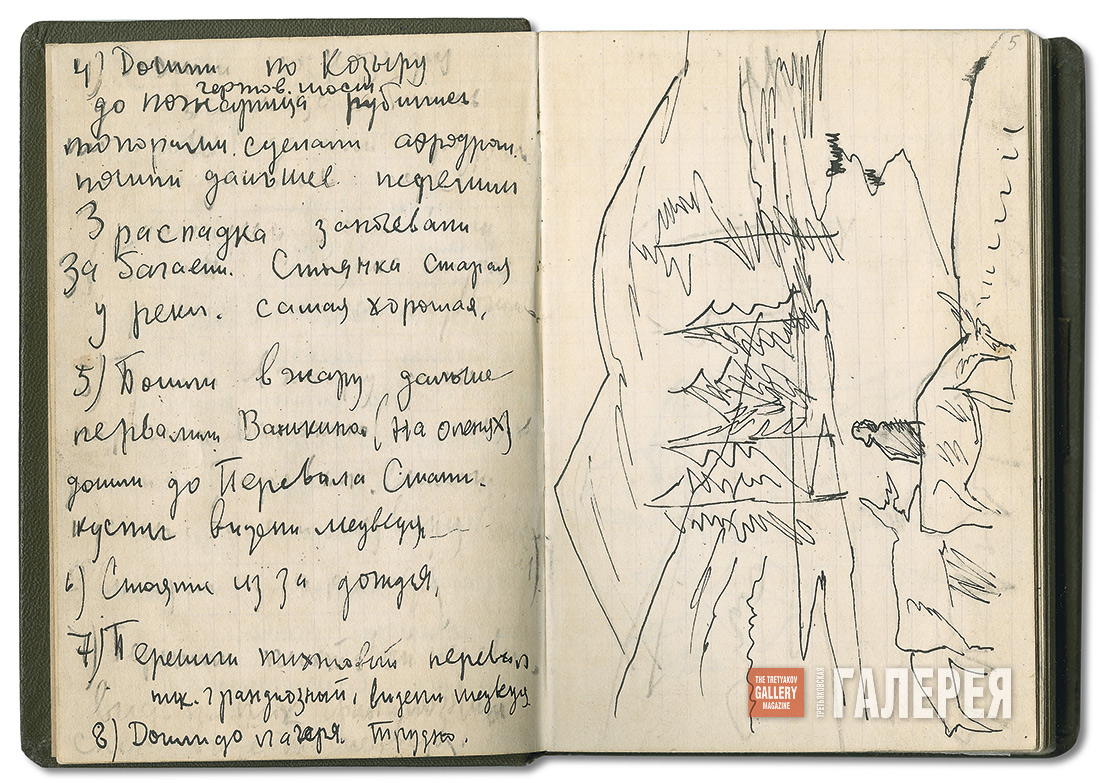 4) Дошли по Козыру
чертов. мост
до пожарища рубились
топорами. сделали аэродром.
пошли дальшев перешли
3 распадка заночевали
за Багаем. Стоянка старая
у реки. самая хорошая.
5) Пошли в жару дальше
первалили Ванькино (на оленях)
дошли до Перевала Стали.
жустиг видели медведя
6) Стояли из за дождья.
7) Перешли пихтовый перевал
пик. грандиозный, видели медведя
8) Дошли до лагеря. Трудно.
5
THE TRETYAKOV
GALLERY
MAGAZINE
ТРЕТЬЯКОВСКАЯ
ГАЛЕРЕЯ